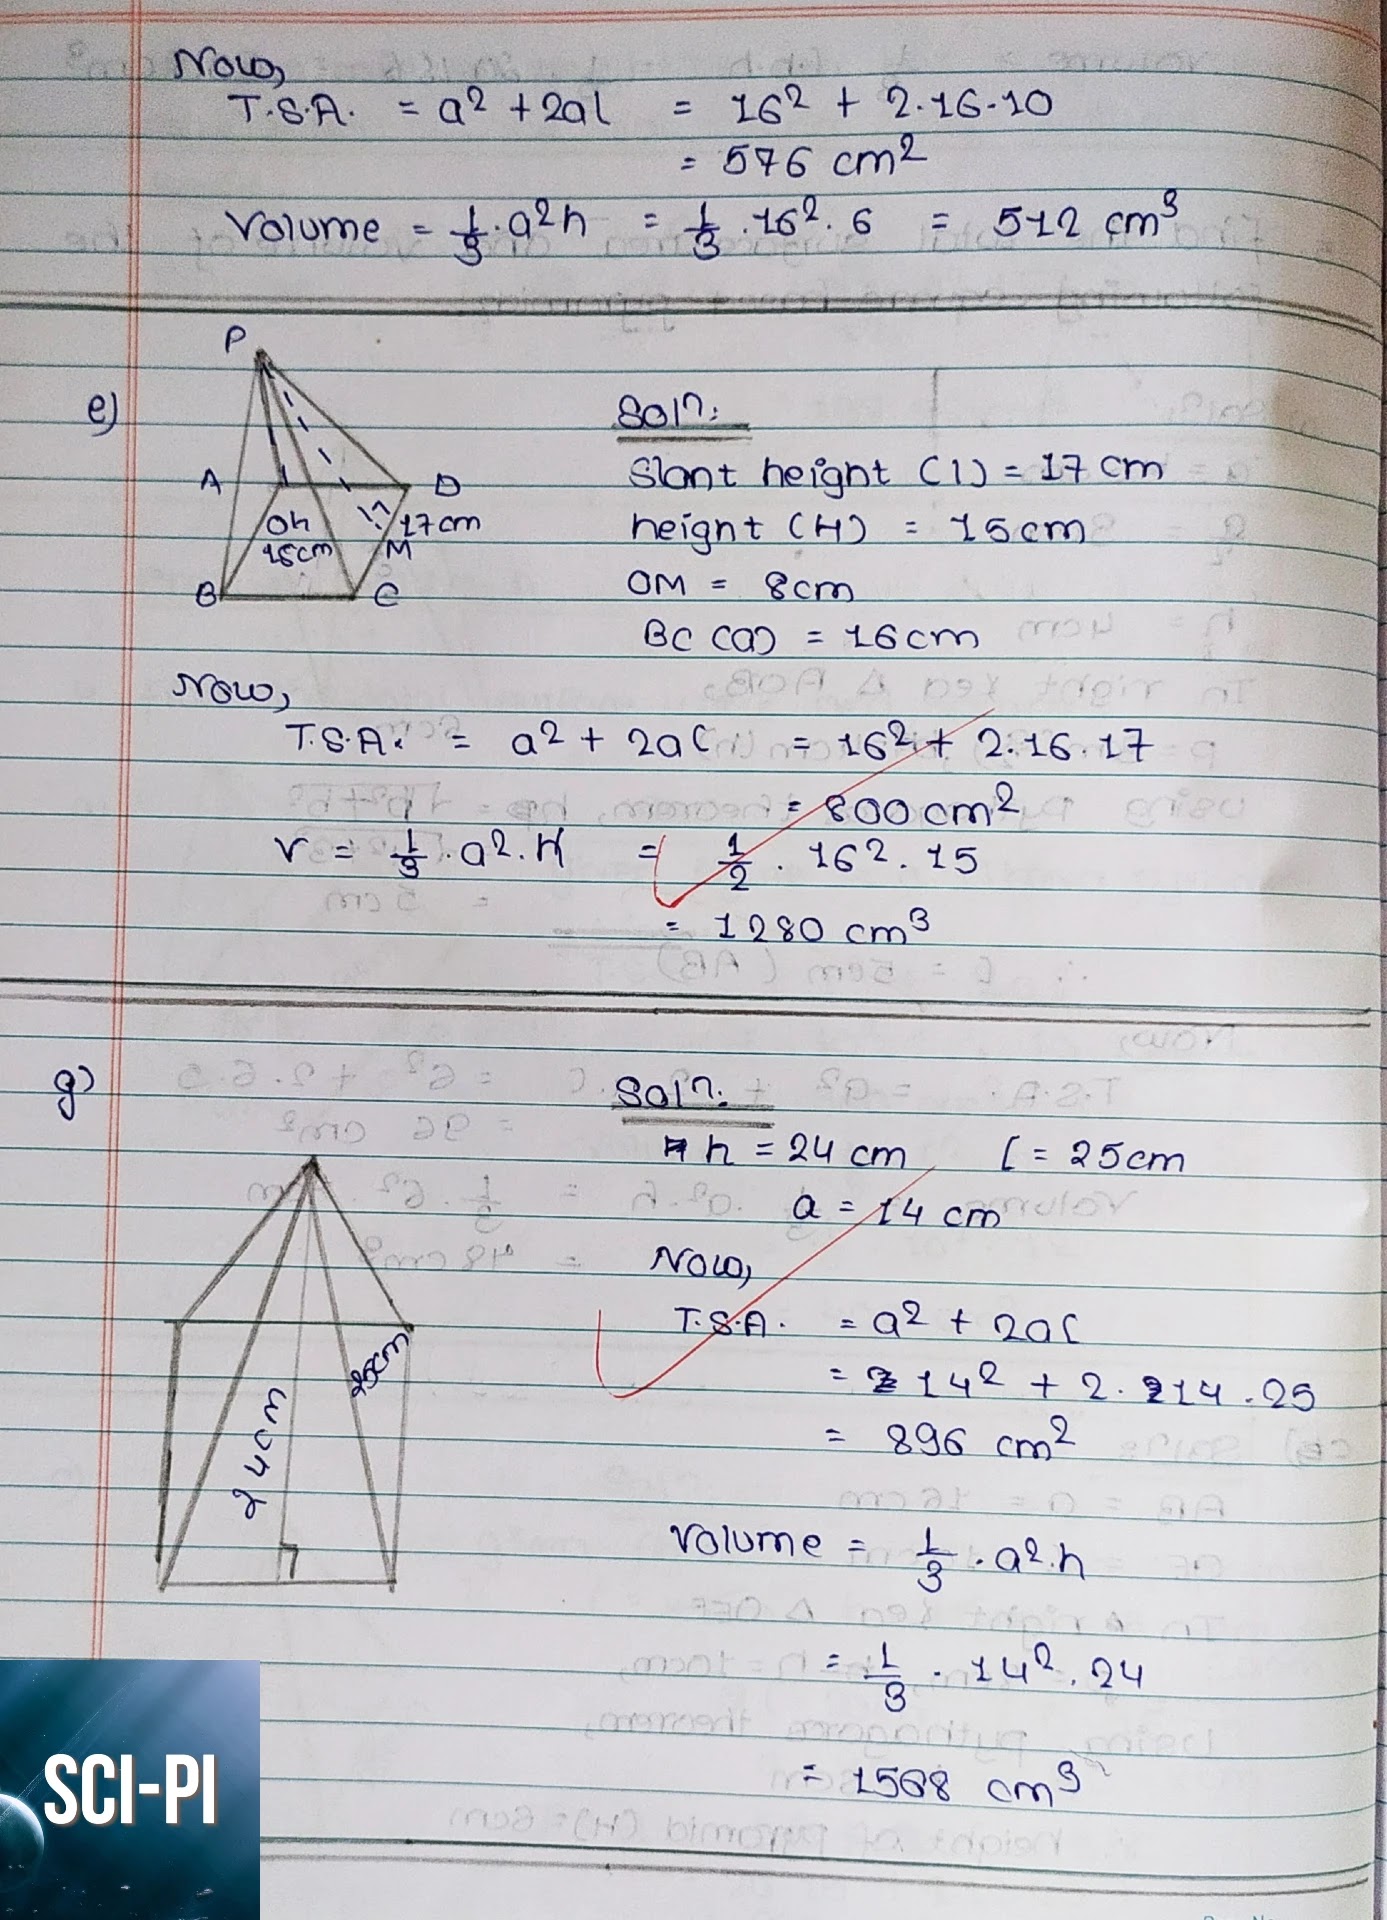 Now,
T.S.A. = a² + 2al = 16² + 2.16.10
= 576 cm²
Volume = 1/3 . a²h = 1/3 . 16² . 6 = 512 cm³
e)
P
A D
Oh 17cm
15cm M
B C
Solⁿ:
Slant height (l) = 17 cm
height (H) = 15cm
OM = 8cm
BC (a) = 16cm
Now,
T.S.A. = a² + 2al = 16² + 2.16.17
= 800 cm²
V = 1/3 . a² . H = 1/2 . 16² . 15
= 1280 cm³
g)
24cm
25cm
Solⁿ:
h = 24 cm l = 25cm
a = 14 cm
Now,
T.S.A. = a² + 2al
= 14² + 2. 14 . 25
= 896 cm²
Volume = 1/3 . a².h
= 1/3 . 14² . 24
= 1568 cm³
SCI-PI